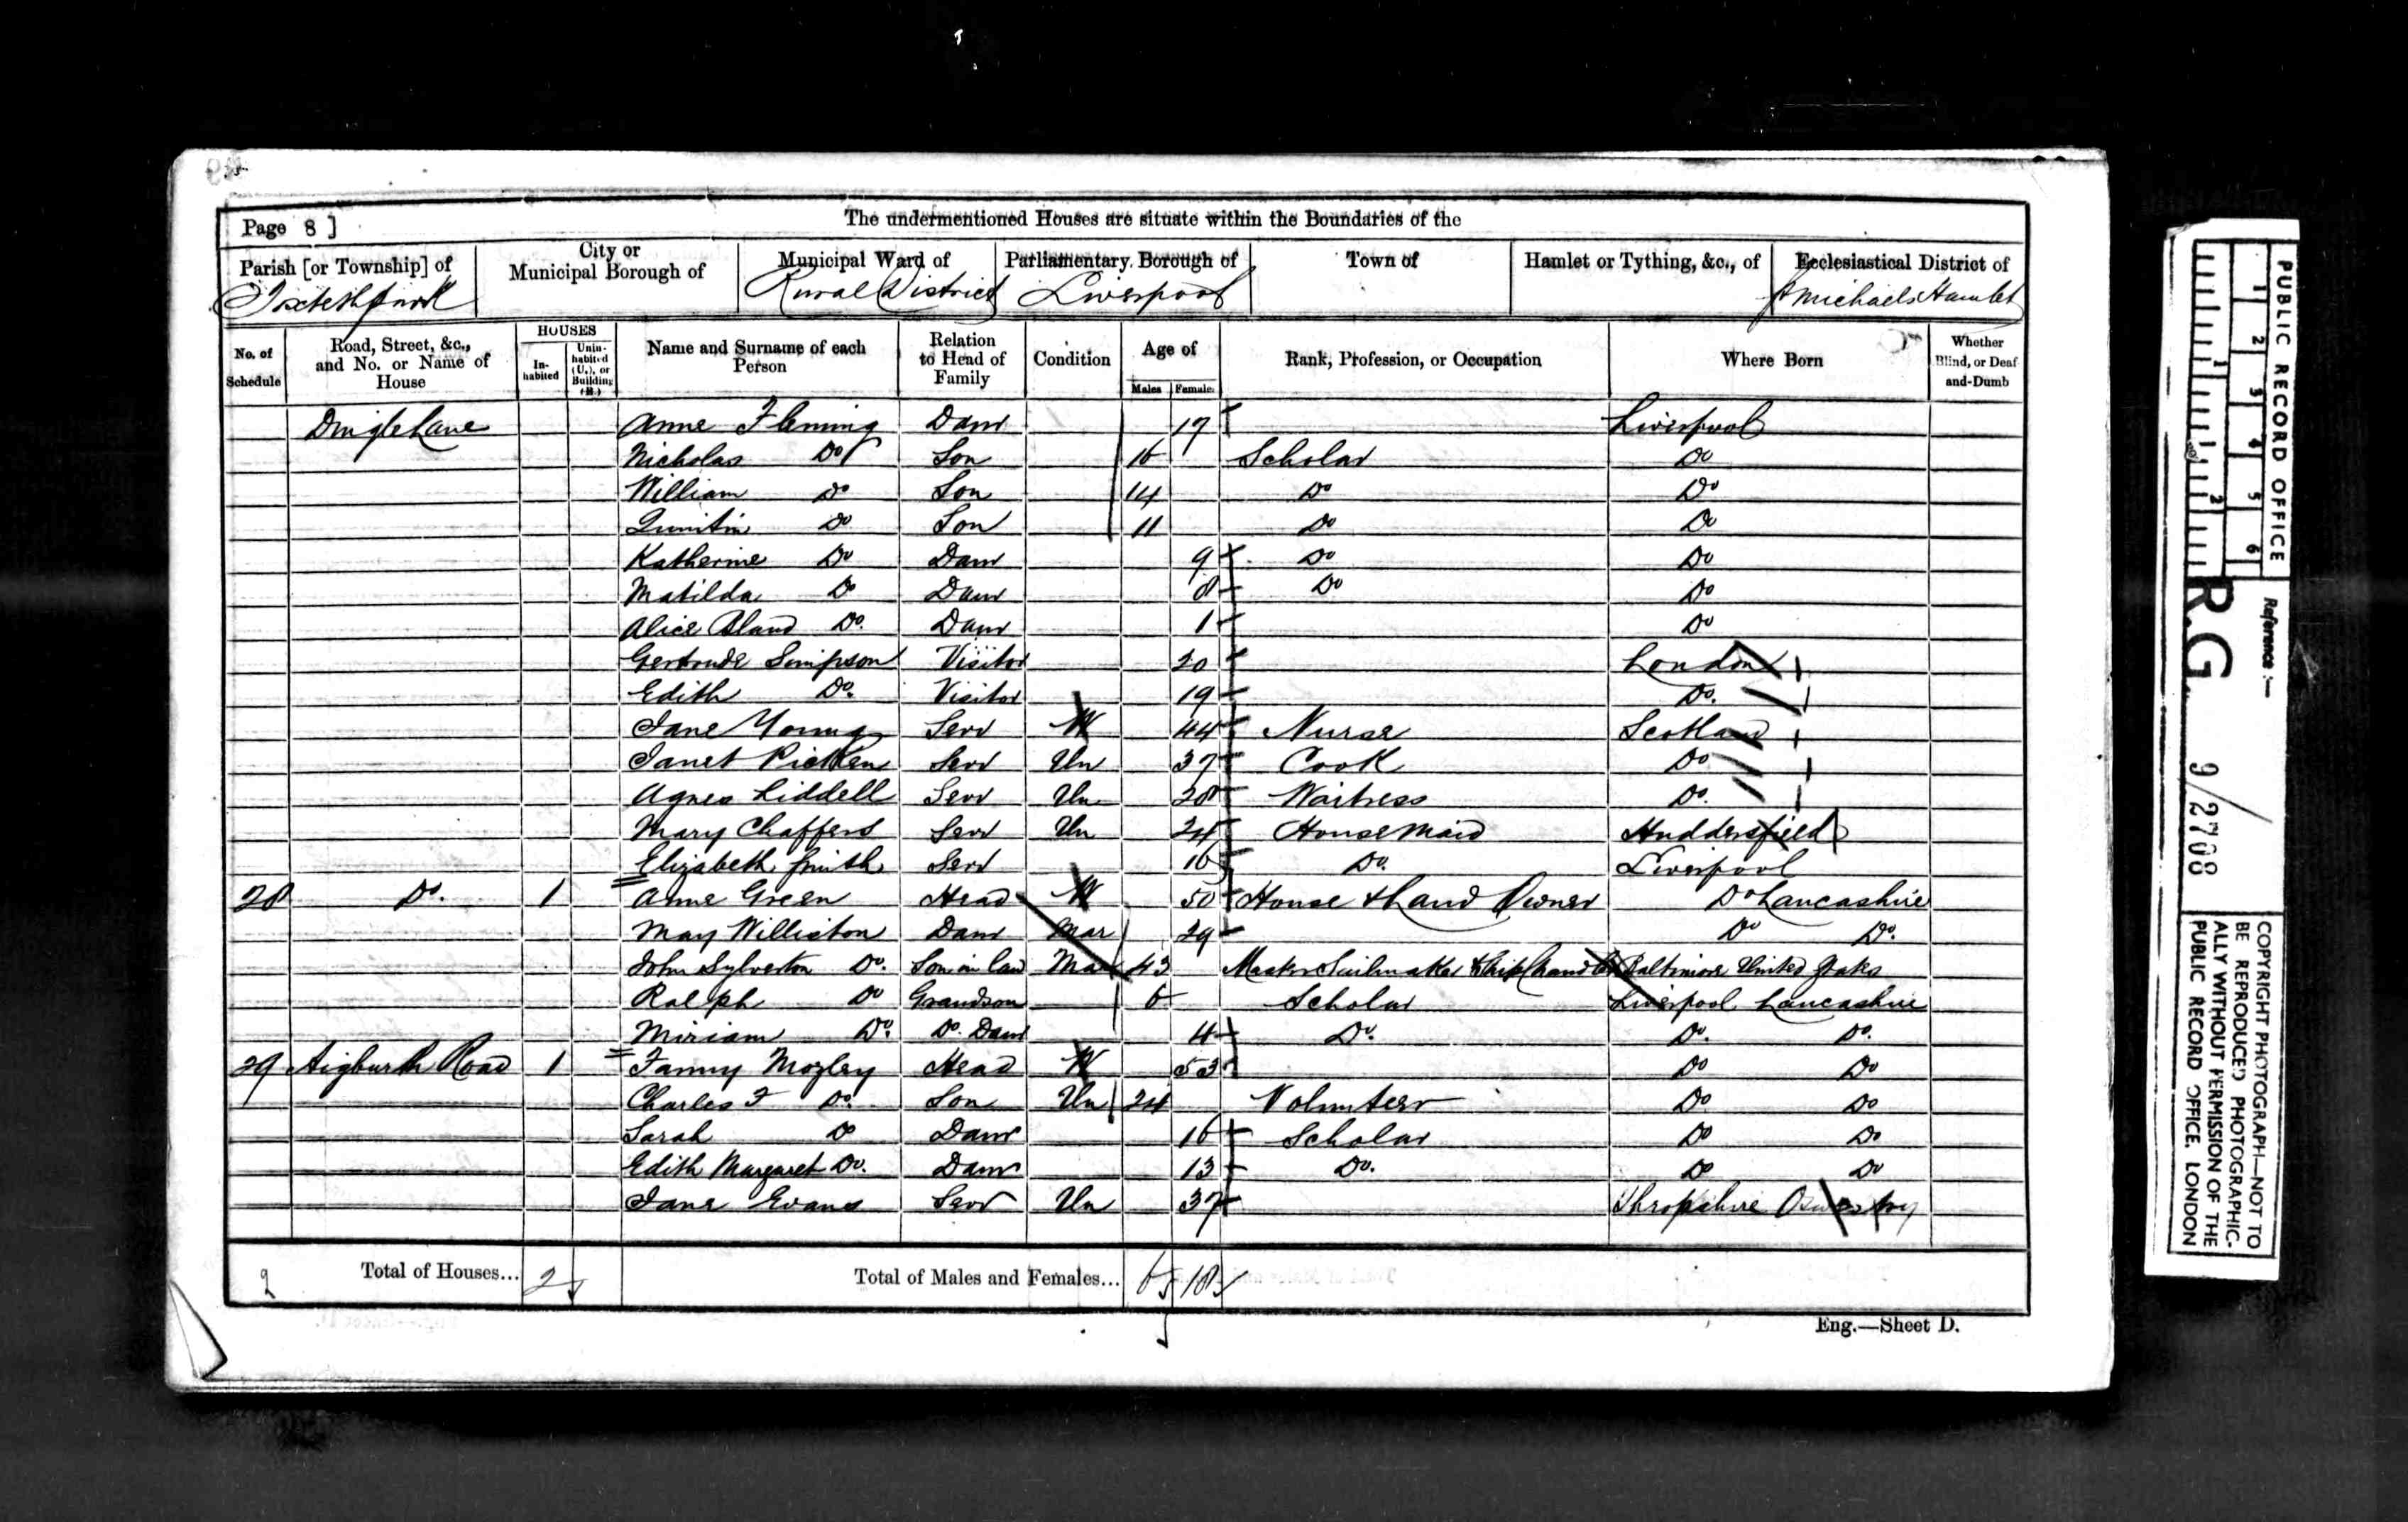 Page 8 ]
The undermentioned Houses are situate within the Boundaries of the
Parish [or Township] of
Toxteth Park
City or Municipal Borough of
Municipal Ward of
Rural District
Parliamentary Borough of
Liverpool
Town of
Hamlet or Tything, &c., of
Ecclesiastical District of
St Michaels Hamlet
No. of Schedule
Road, Street, &c., and No. or Name of House
HOUSES
In-habited
Unin-habited (U.), or Building (B.)
Name and Surname of each Person
Relation to Head of Family
Condition
Age of
Males
Females
Rank, Profession, or Occupation
Where Born
Whether Blind, or Deaf-and-Dumb
Dingle Lane Anne Fleming Daur 17 Liverpool
Nicholas Do Son 16 Scholar Do
William Do Son 14 Do Do
Quintin Do Son 11 Do Do
Katherine Do Daur 9 Do Do
Matilda Do Daur 8 Do Do
Alice Bland Do. Daur 1 Do
Gertrude Simpson Visitor 20 London
Edith Do. Visitor 19 Do.
Jane Young Serv W 44 Nurse Scotland
Janet Picken Serv Un 37 Cook Do
Agnes Liddell Serv Un 28 Waitress Do.
Mary Chaffers Serv Un 24 House Maid Huddersfield
Elizabeth Smith Serv 16 Do. Liverpool
28 Do. 1 Anne Green Head W 50 House & Land Owner Do Lancashire
May Williston Daur Mar 29 Do Do.
John Sylverton Do. Son in law Mar 43 Master Sailmaker & Ship Chandler Baltimore United States
Ralph Do Grandson 6 Scholar Liverpool Lancashire
Miriam Do. Do. Daur 4 Do. Do. Do.
29 Aigburth Road 1 Fanny Mozley Head W 53 Do Do
Charles F Do. Son Un 24 Volunteer Do Do
Sarah Do Daur 16 Scholar Do Do
Edith Margaret Do. Daur 13 Do. Do Do
Jane Evans Serv Un 37 Shropshire Oswestry
2 Total of Houses... 2
Total of Males and Females... 6 18
Eng.—Sheet D.
PUBLIC RECORD OFFICE
1 2 3 4 5 6
1 2
Reference :—
R.G. 9/2708
COPYRIGHT PHOTOGRAPH—NOT TO
BE REPRODUCED PHOTOGRAPHIC-
ALLY WITHOUT PERMISSION OF THE
PUBLIC RECORD OFFICE, LONDON